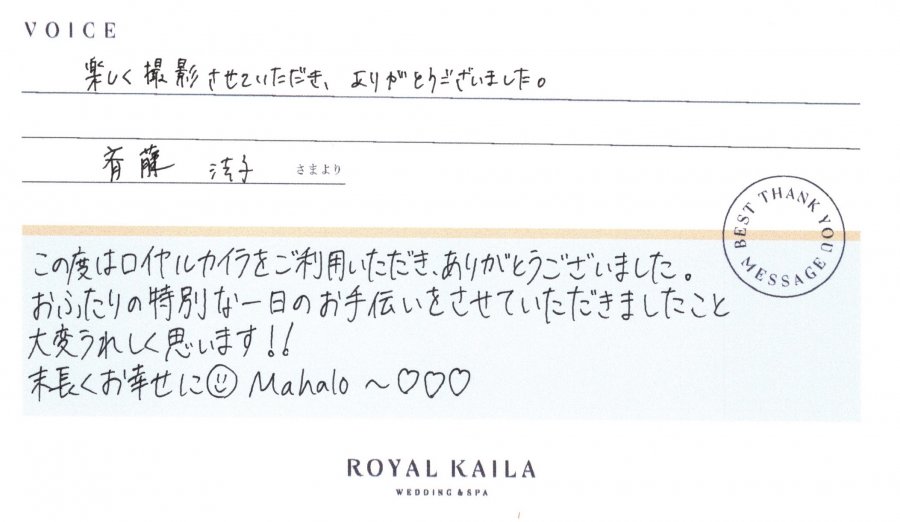 VOICE
楽しく撮影させていただき、ありがとうございました。
斉藤 法子 さまより
BEST THANK YOU MESSAGE
この度はロイヤルカイラをご利用いただき、ありがとうございました。
おふたりの特別な一日のお手伝いをさせていただきましたこと
大変うれしく思います!!
末長くお幸せに☺ Mahalo ～♡♡♡
ROYAL KAILA
WEDDING & SPA